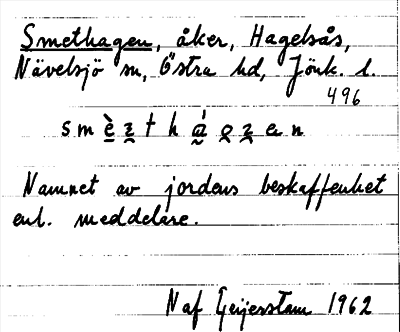 Smethagen, åker, Hagelsås,
Nävelsjö sn, Östra hd, Jönk. l.
496
Namnet av jordens beskaffenhet
enl. meddelare.
N af Geijerstam 1962